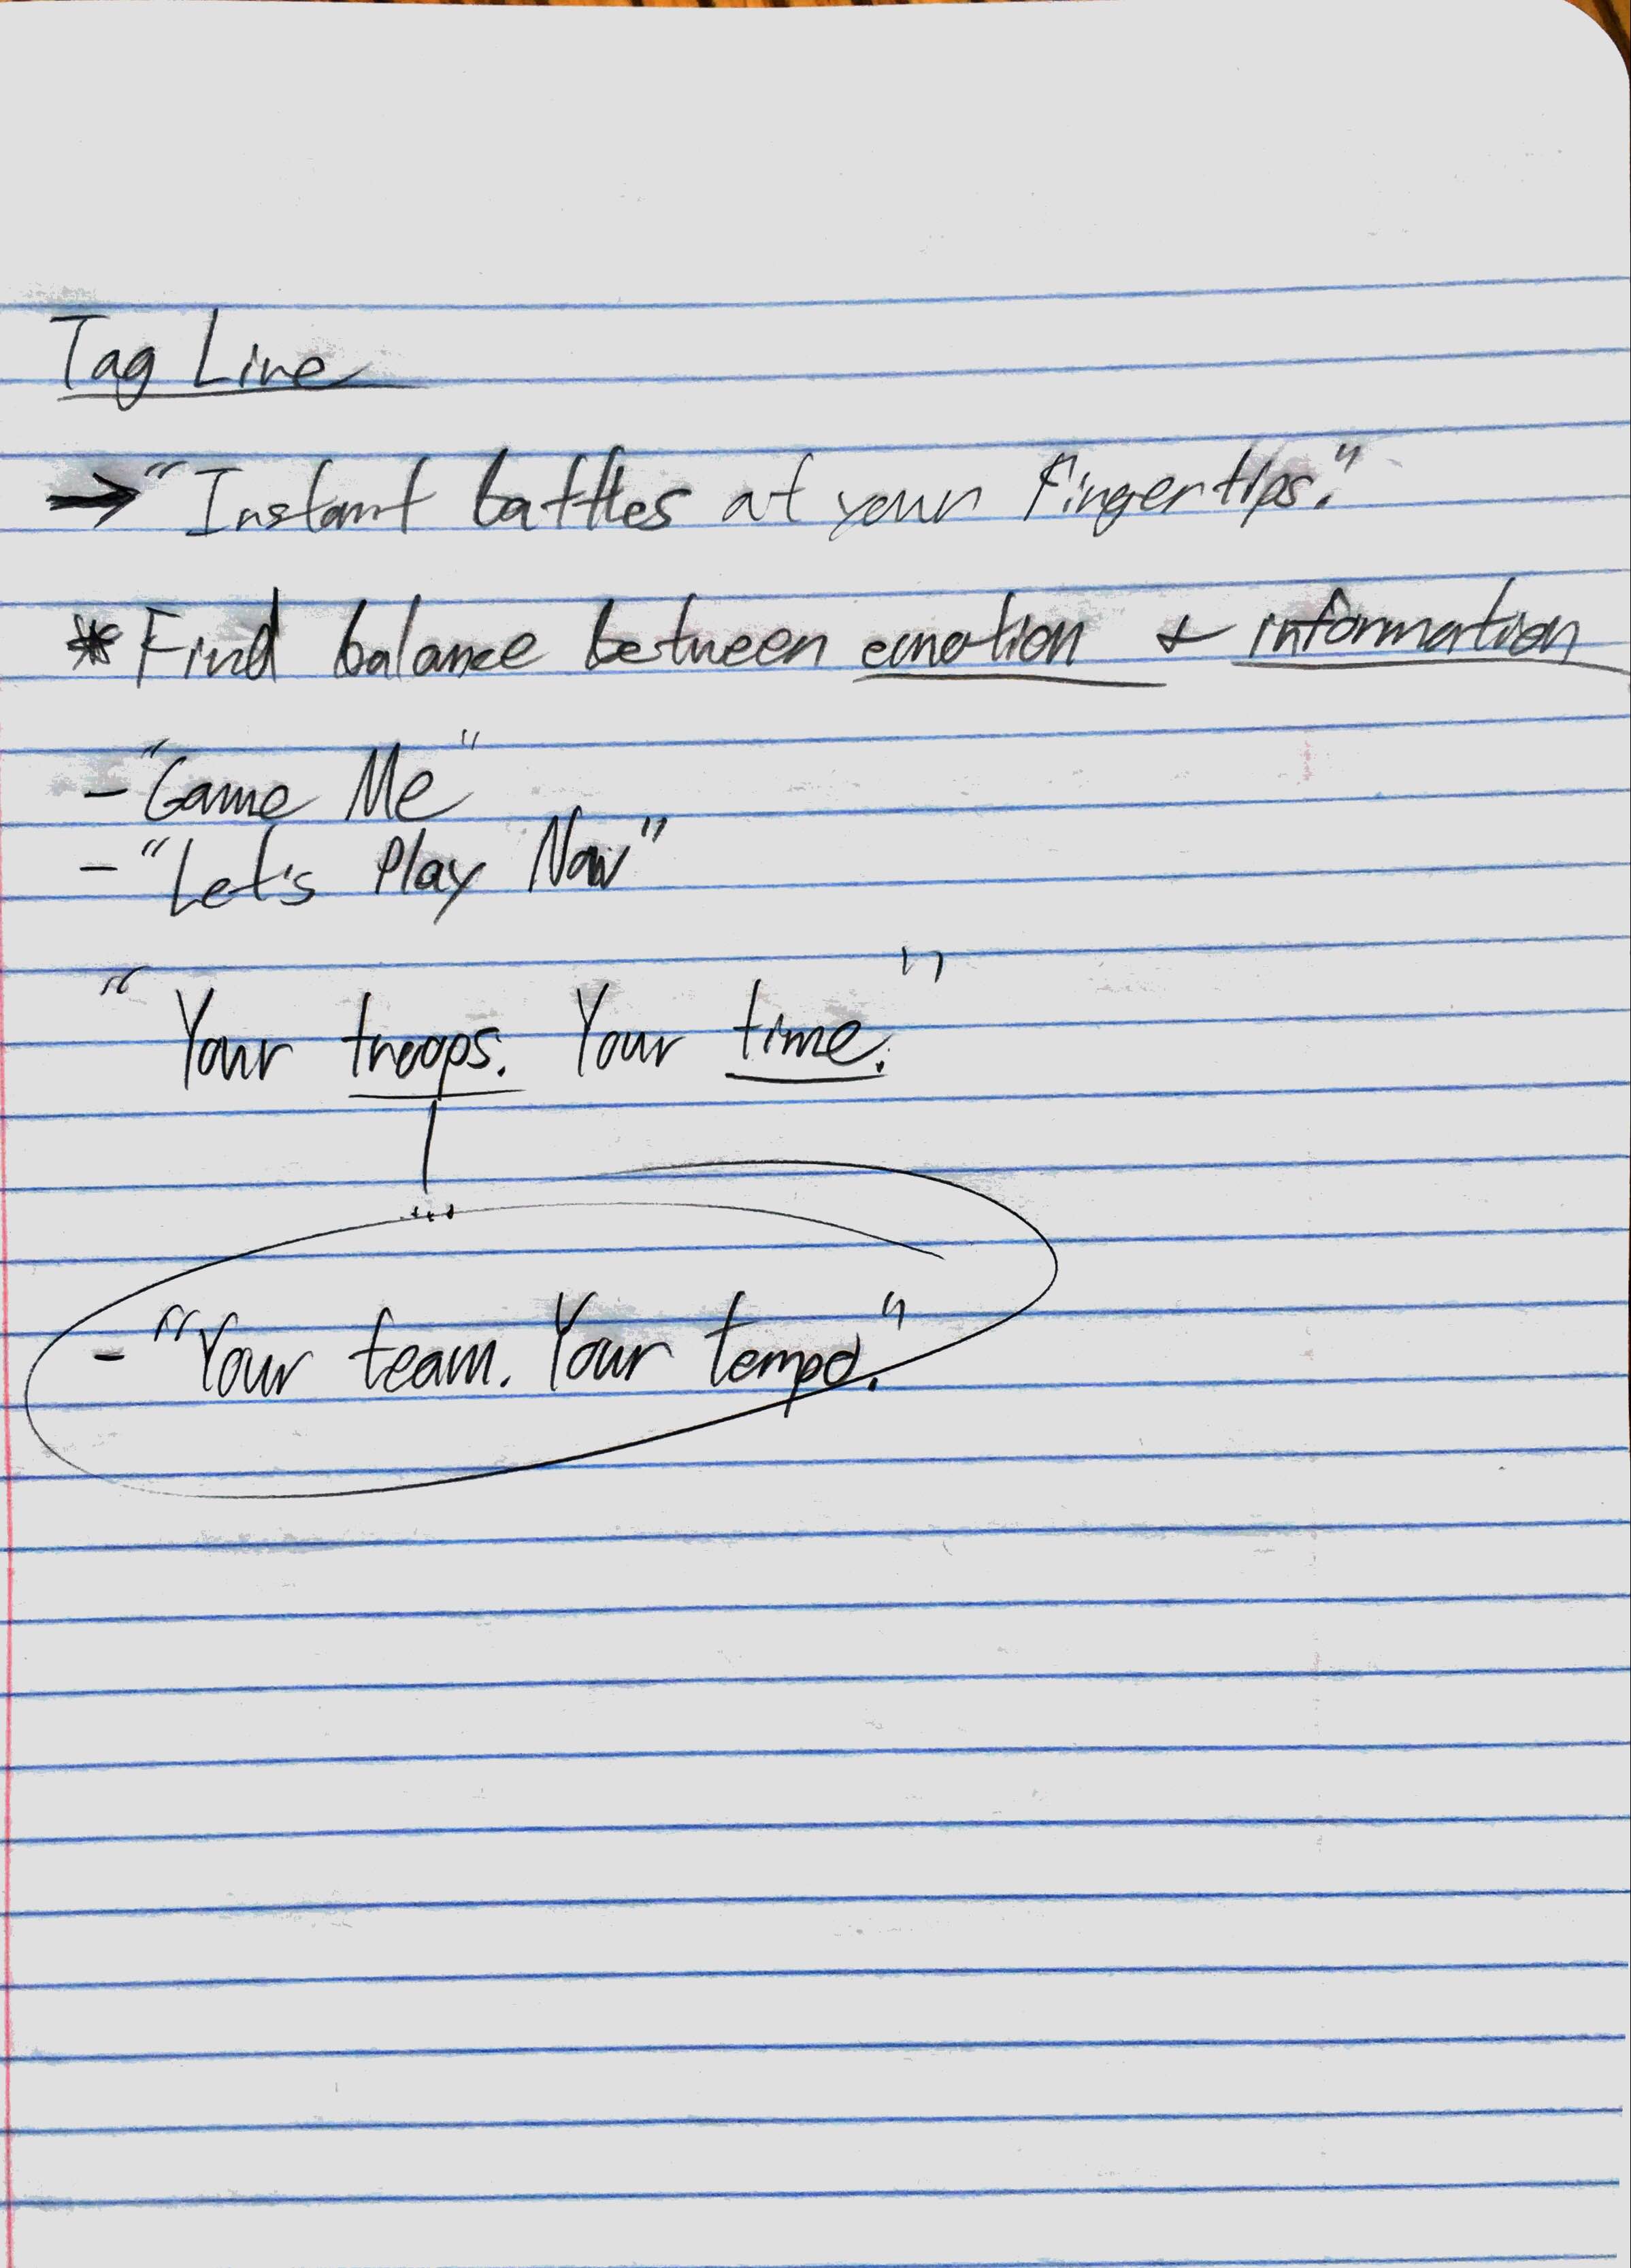 Tag Line
→ "Instant battles at your fingertips."
* Find balance between emotion & information
- "Game Me"
- "Let's Play Now"
"Your troops. Your time."
...
- "Your team. Your tempo."